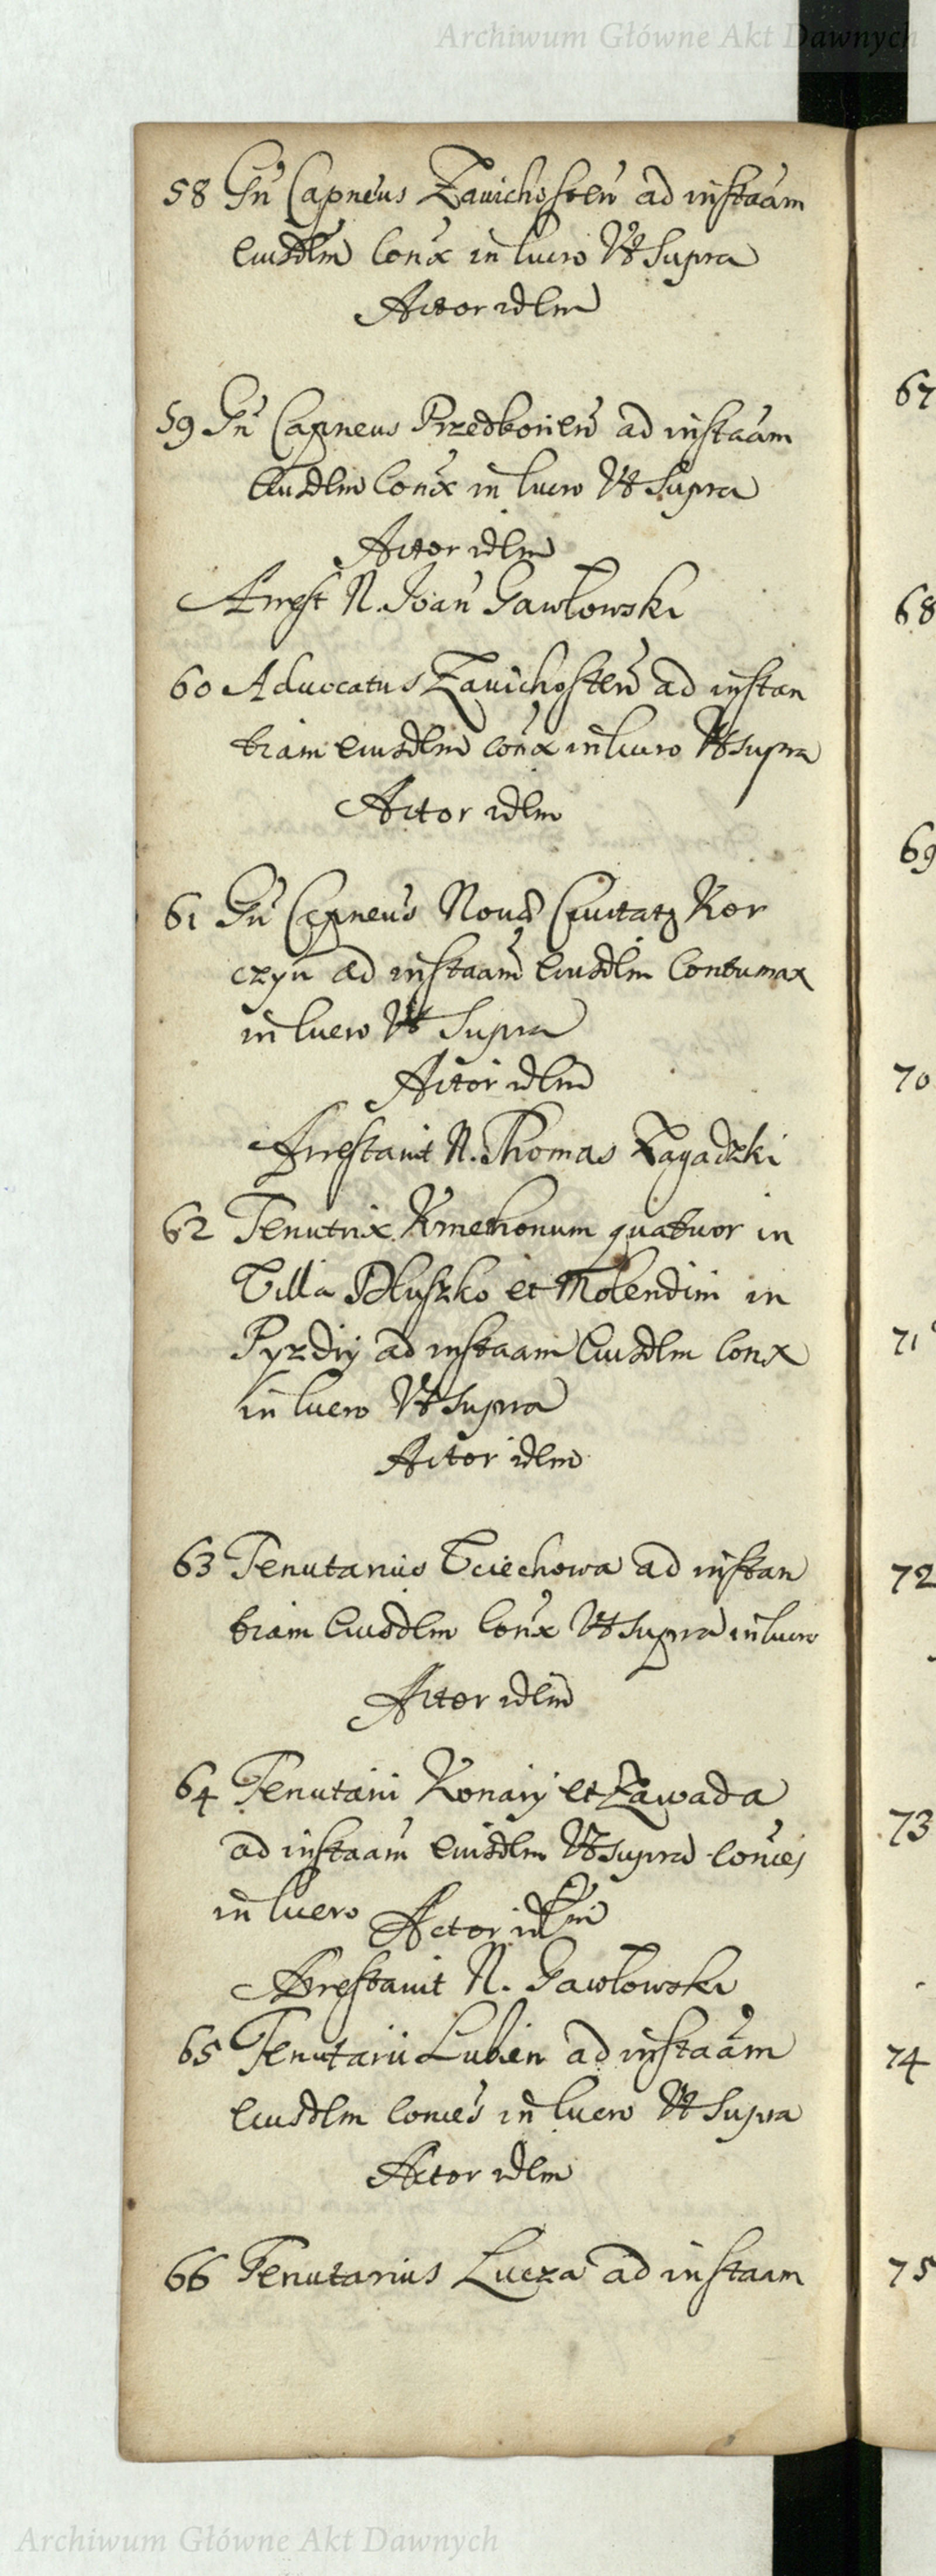 Archiwum Główne Akt Dawnych
58 Gn Capneus Zavichosten ad instaam
Eiusdem Conx in lucro Ut Supra
Actor idem
59 Gn Capneus Przedborien ad instaam
Eiusdem Conx in lucro Ut Supra
Actor idem
Arrest N. Joan Gawłowski
60 Advocatus Zavichosten ad instan
tiam Eiusdem conx in lucro Ut supra
Actor idem
61 Gn Capneus Nova Civitatis Kor
czyn ad instaam Eiusdem Contumax
in lucro Ut Supra
Actor idem
Arrestavit N. Thomas Zagadzki
62 Tenutrix Kmethonum quatuor in
Villa Dłuszko et Molendini in
Pyzdry ad instaam Eiusdem Conx
in lucro Ut supra
Actor idem
63 Tenutarius Vciechowa ad instan
tiam Eiusdem Conx Ut supra in lucro
Actor idem
64 Tenutarii Konary et Zawada
ad instaam Eiusdem Ut supra Conces
in lucro Actor idem
Arrestavit N. Gawłowski
65 Tenutarii Lubien ad instaam
Eiusdem Conces in lucro Ut Supra
Actor idem
66 Tenutarius Lucza ad instaam
67
68
69
70
71
72
73
74
75
Archiwum Główne Akt Dawnych